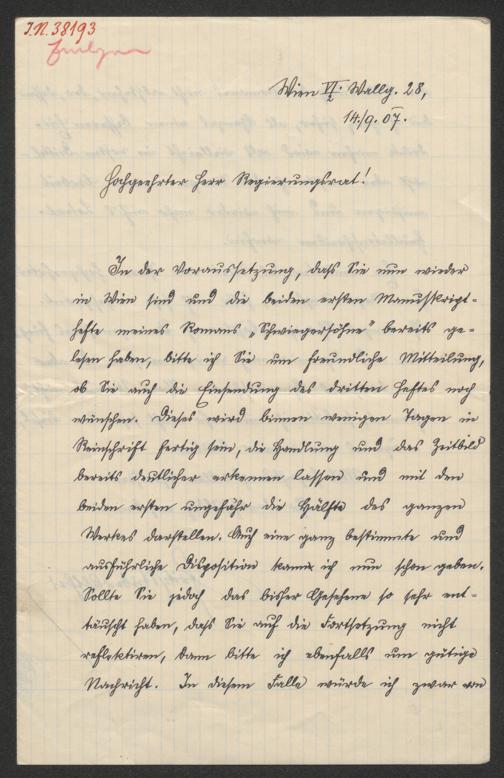 I.N. 38193
Wien VI. Wallg. 28,
14./9. 07.
Hochgeehrter Herr Regierungsrat!
In der Voraussetzung, daß Sie nun wieder
in Wien sind und die beiden ersten Manuskript-
hefte meines Romans „Schwiegersöhne“ bereits ge-
lesen haben, bitte ich Sie um freundliche Mitteilung,
ob Sie auch die Einsendung des dritten Heftes noch
wünschen. Dieses wird binnen wenigen Tagen in
Reinschrift fertig sein, die Handlung und das Zeitbild
bereits deutlicher erkennen lassen und mit den
beiden ersten ungefähr die Hälfte des ganzen
Werkes darstellen. Auch eine ganz bestimmte und
ausführliche Disposition kann ich nun schon geben.
Sollte Sie jedoch das bisher Gesehene so sehr ent-
täuscht haben, daß Sie auf die Fortsetzung nicht
reflektiren, dann bitte ich ebenfalls um gütige
Nachricht. In diesem Falle würde ich zwar von